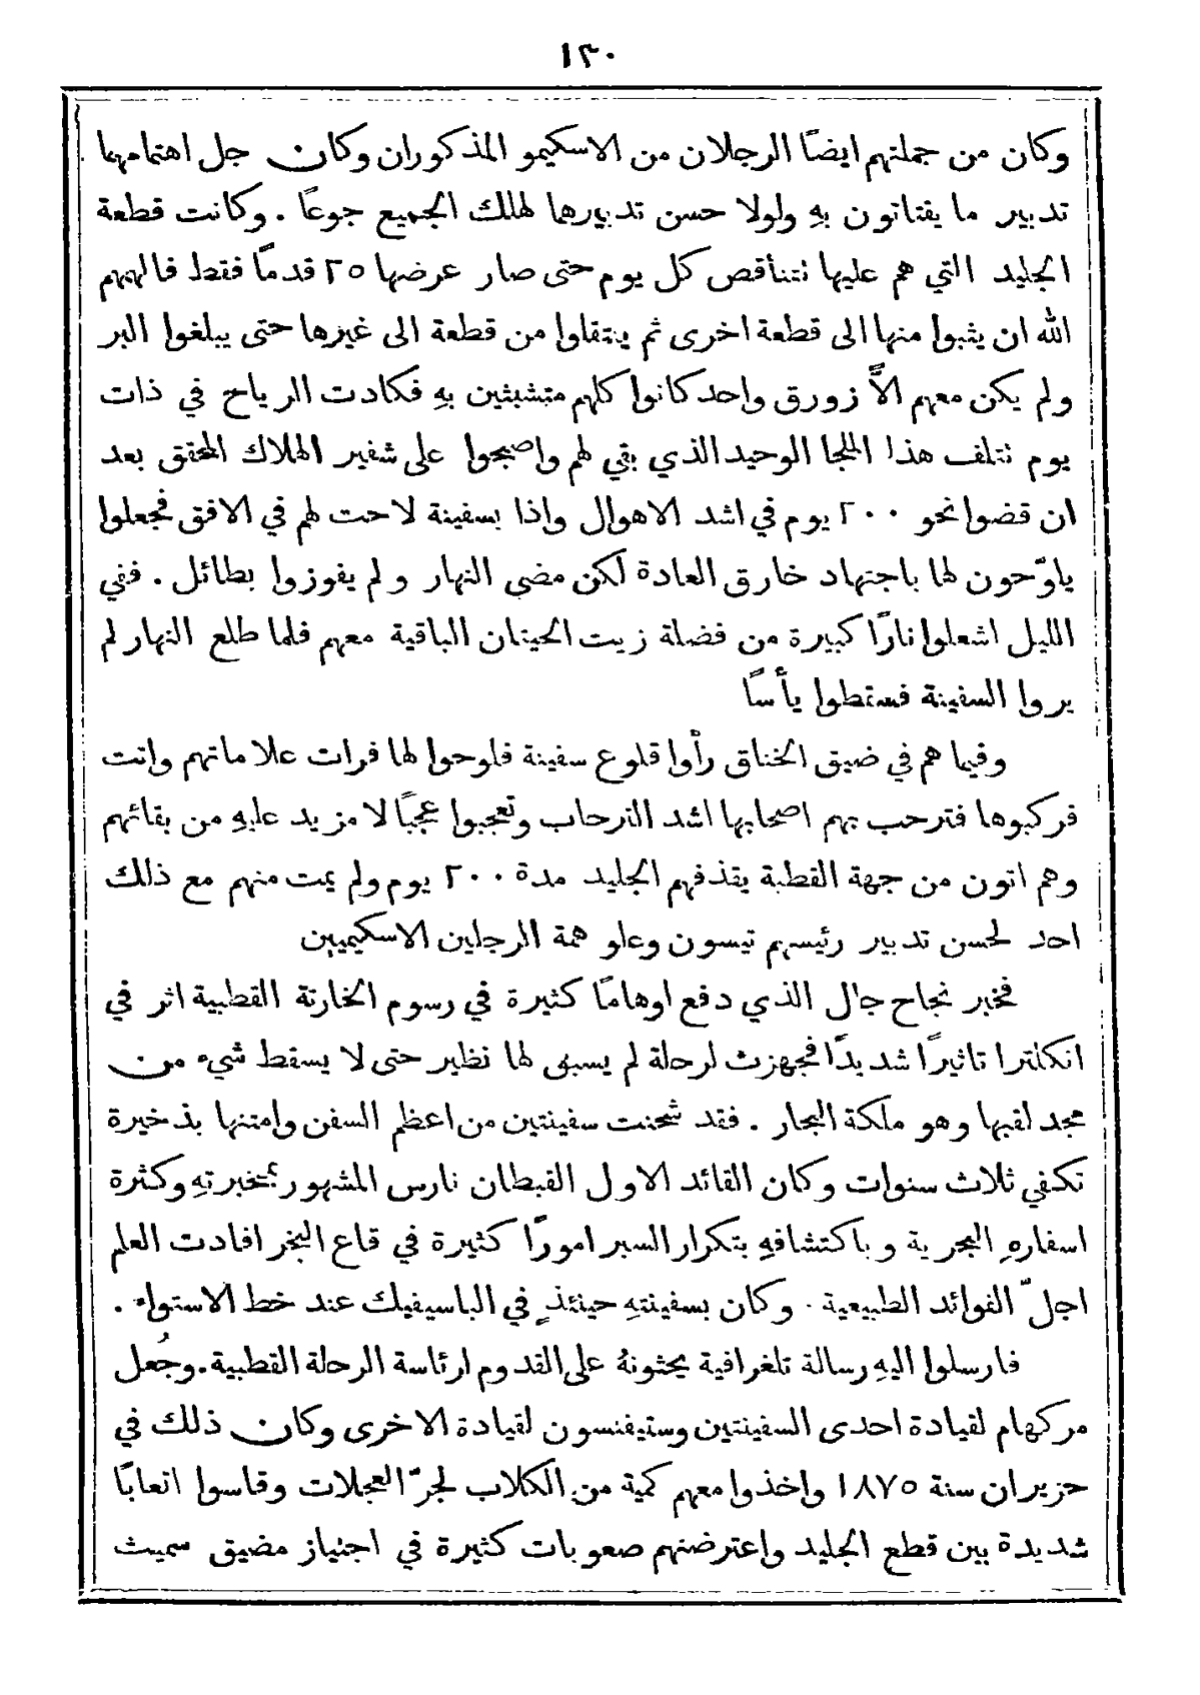 ١٣٠
وكان من جملتهم ايضًا الرجلان من الاسكيمو المذكوران وكان جل اهتمامهما
تدبير ما يقتاتون بهِ ولولا حسن تدبيرهما لهلك الجميع جوعًا . وكانت قطعة
الجليد التي هم عليها تتناقص كل يوم حتى صار عرضها ٢٥ قدمًا فقط فالهمهم
الله ان يثبوا منها الى قطعة اخرى ثم ينتقلوا من قطعة الى غيرها حتى يبلغوا البر
ولم يكن معهم الاَّ زورق واحد كانوا كلهم متشبثين بهِ فكادت الرياح في ذات
يوم تتلف هذا الملجا الوحيد الذي بقي لهم واصبحوا على شفير الهلاك المحقق بعد
ان قضوا نحو ٢٠٠ يوم في اشد الاهوال واذا بسفينة لاحت لهم في الافق فجعلوا
يلوّحون لها باجتهاد خارق العادة لكن مضى النهار ولم يفوزوا بطائل . ففي
الليل اشعلوا نارًا كبيرة من فضلة زيت الحيتان الباقية معهم فلما طلع النهار لم
يروا السفينة فسقطوا يأسًا
وفيما هم في ضيق الخناق رأوا قلوع سفينة فلوحوا لها فرات علاماتهم واتت
فركبوها فترحب بهم اصحابها اشد الترحاب وتعجبوا عجبًا لا مزيد عليهِ من بقائهم
وهم اتون من جهة القطبة يقذفهم الجليد مدة ٢٠٠ يوم ولم يمت منهم مع ذلك
احد لحسن تدبير رئيسهم تيسون وعلو همة الرجلين الاسكيميين
فخبر نجاح جال الذي دفع اوهامًا كثيرة في رسوم الخارتة القطبية اثر في
انكلترا تاثيرًا شديدًا فجهزت لرحلة لم يسبق لها نظير حتى لا يسقط شيء من
مجد لقبها وهو ملكة البحار . فقد شحنت سفينتين من اعظم السفن وامتنها بذخيرة
تكفي ثلاث سنوات وكان القائد الاول القبطان نارس المشهور بخبرتهِ وكثرة
اسفارهِ البحرية وباكتشافهِ بتكرار السبر امورًا كثيرة في قاع البحر افادت العلم
اجلّ الفوائد الطبيعية . وكان بسفينتهِ حينئذٍ في الباسيفيك عند خط الاستواء .
فارسلوا اليهِ رسالة تلغرافية يحثونهُ على القدوم لرئاسة الرحلة القطبية . وجُعل
مركهام لقيادة احدى السفينتين وستيفنسون لقيادة الاخرى وكان ذلك في
حزيران سنة ١٨٧٥ واخذوا معهم كمية من الكلاب لجرّ العجلات وقاسوا اتعابًا
شديدة بين قطع الجليد واعترضتهم صعوبات كثيرة في اجتياز مضيق سميث